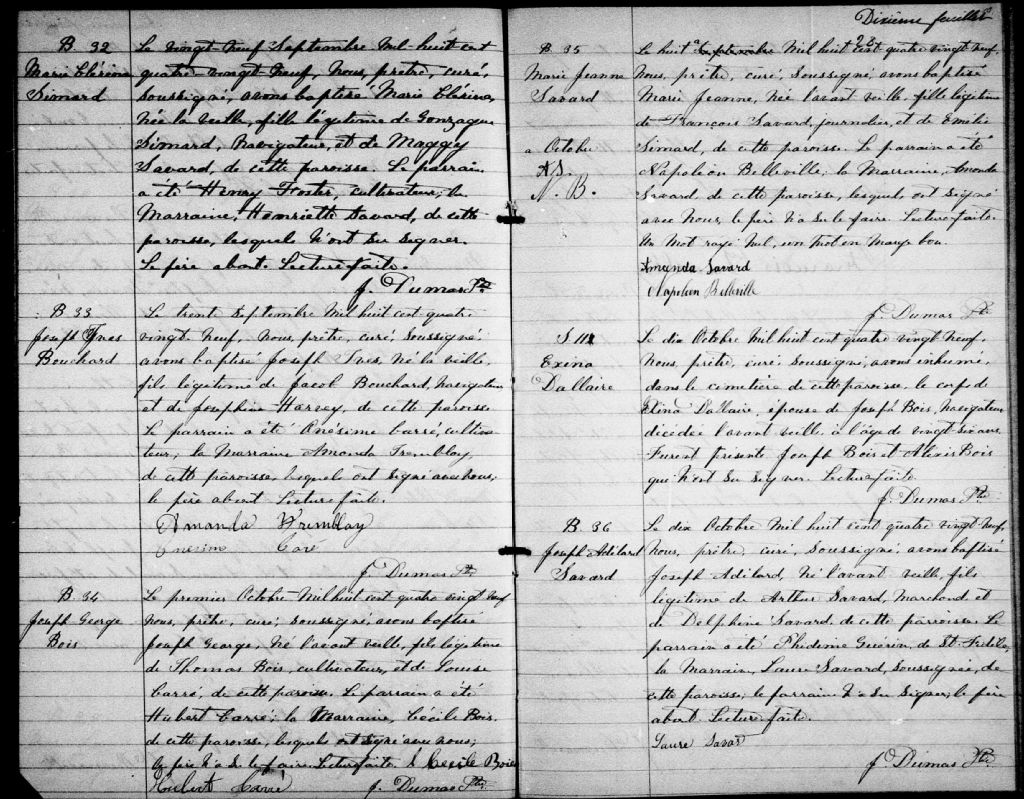 B. 32
Marie Clérina
Simard
Le vingt-neuf Septembre Mil huit cent
quatre vingt neuf, Nous, prêtre, curé,
soussigné, avons baptisé Marie Clérina,
Née la veille, fille légitime de Gonzague
Simard, Navigateur, et de Maggy
Savard, de cette paroisse. Le parrain
a été Henry Foster, cultivateur; la
Marraine, Henriette Savard, de cette
paroisse, lesquels n'ont su signer.
Le père absent. Lecture faite.
J. Dumas Ptre
B 33
Joseph Yves
Bouchard
Le trent Septembre Mil huit cent quatre
vingt neuf, Nous, prêtre, curé, soussigné,
avons baptisé Joseph Yves, Né la veille,
fils légitime de Jacob Bouchard, Navigateur
et de Josephine Harvey, de cette paroisse
Le parrain a été Onésime Carré, cultiva-
teur, la Marraine Amanda Tremblay,
de cette paroisse, lesquels ont signé avec nous,
le père absent. Lecture faite.
Amanda Tremblay
Onésime Caré
J. Dumas Ptre
B. 34
Joseph George
Bois
Le premier Octobre Mil huit cent quatre vingt neuf
Nous, prêtre, curé, soussigné, avons baptisé
Joseph George, Né l'avant veille, fils légitime
de Thomas Bois, cultivateur, et de Louise
Carré, de cette paroisse. Le parrain a été
Hubert Carré; la Marraine, Cécile Bois,
de cette paroisse, lesquels ont signé avec nous;
le père n'a su le faire. Lecture faite. Cecile Bois
Hubert Carré J. Dumas Ptre
Dixième feuillet
B 35
Marie Jeanne
Savard
a Octobre
N. B.
Le huit a Septembre Mil huit cent quatre vingt neuf,
Nous, prêtre, curé, soussigné, avons baptisé
Marie Jeanne, Née l'avant veille, fille légitime
de François Savard, journalier, et de Emélie
Simard, de cette paroisse. Le parrain a été
Napoléon Belleville; la Marraine, Amanda
Savard, de cette paroisse, lesquels ont signé
avec Nous, le père n'a su le faire. Lecture faite.
Un Mot rayé Nul, un Mot en Marge bon.
Amanda Savard
Napoléon Belleville
J. Dumas Ptre
S III
Exina
Dallaire
Le dix Octobre Mil huit cent quatre vingt neuf,
Nous, prêtre, curé, soussigné, avons inhumé,
dans le cimetière de cette paroisse, le corps de
Exina Dallaire, épouse de Joseph Bois, Navigateur
décédée l'avant veille, à l'âge de vingt-six ans.
Furent présents Joseph Bois et Alexis Bois
qui n'ont su signer. Lecture faite.
J. Dumas Ptre
B. 36
Joseph Adélard
Savard
Le dix Octobre Mil huit cent quatre vingt neuf,
Nous, prêtre, curé, soussigné, avons baptisé
Joseph Adélard, Né l'avant veille, fils
légitime de Arthur Savard, Marchand et
de Delphine Savard, de cette paroisse. Le
parrain a été Phidime Guérin, de St Fidèle,
la Marrain, Laure Savard, soussignée, de
cette paroisse; le parrain n'a su signer; le père
absent. Lecture faite.
Laure Savard
J. Dumas Ptre